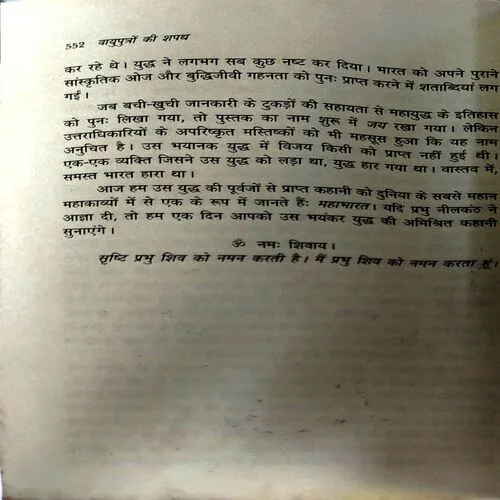 552 वायुपुत्रों की शपथ
कर रहे थे। युद्ध ने लगभग सब कुछ नष्ट कर दिया। भारत को अपने पुराने
सांस्कृतिक ओज और बुद्धिजीवी गहनता को पुनः प्राप्त करने में शताब्दियां लग
गईं।
जब बची-खुची जानकारी के टुकड़ों की सहायता से महायुद्ध के इतिहास
को पुनः लिखा गया, तो पुस्तक का नाम शुरू में जय रखा गया। लेकिन
उत्तराधिकारियों के अपरिष्कृत मस्तिष्कों को भी महसूस हुआ कि यह नाम
अनुचित है। उस भयानक युद्ध में विजय किसी को प्राप्त नहीं हुई थी।
एक-एक व्यक्ति जिसने उस युद्ध को लड़ा था, युद्ध हार गया था। वास्तव में,
समस्त भारत हारा था।
आज हम उस युद्ध की पूर्वजों से प्राप्त कहानी को दुनिया के सबसे महान
महाकाव्यों में से एक के रूप में जानते हैं: महाभारत। यदि प्रभु नीलकंठ ने
आज्ञा दी, तो हम एक दिन आपको उस भयंकर युद्ध की अमिश्रित कहानी
सुनाएंगे।
ॐ नमः शिवाय।
सृष्टि प्रभु शिव को नमन करती है। मैं प्रभु शिव को नमन करता हूं।